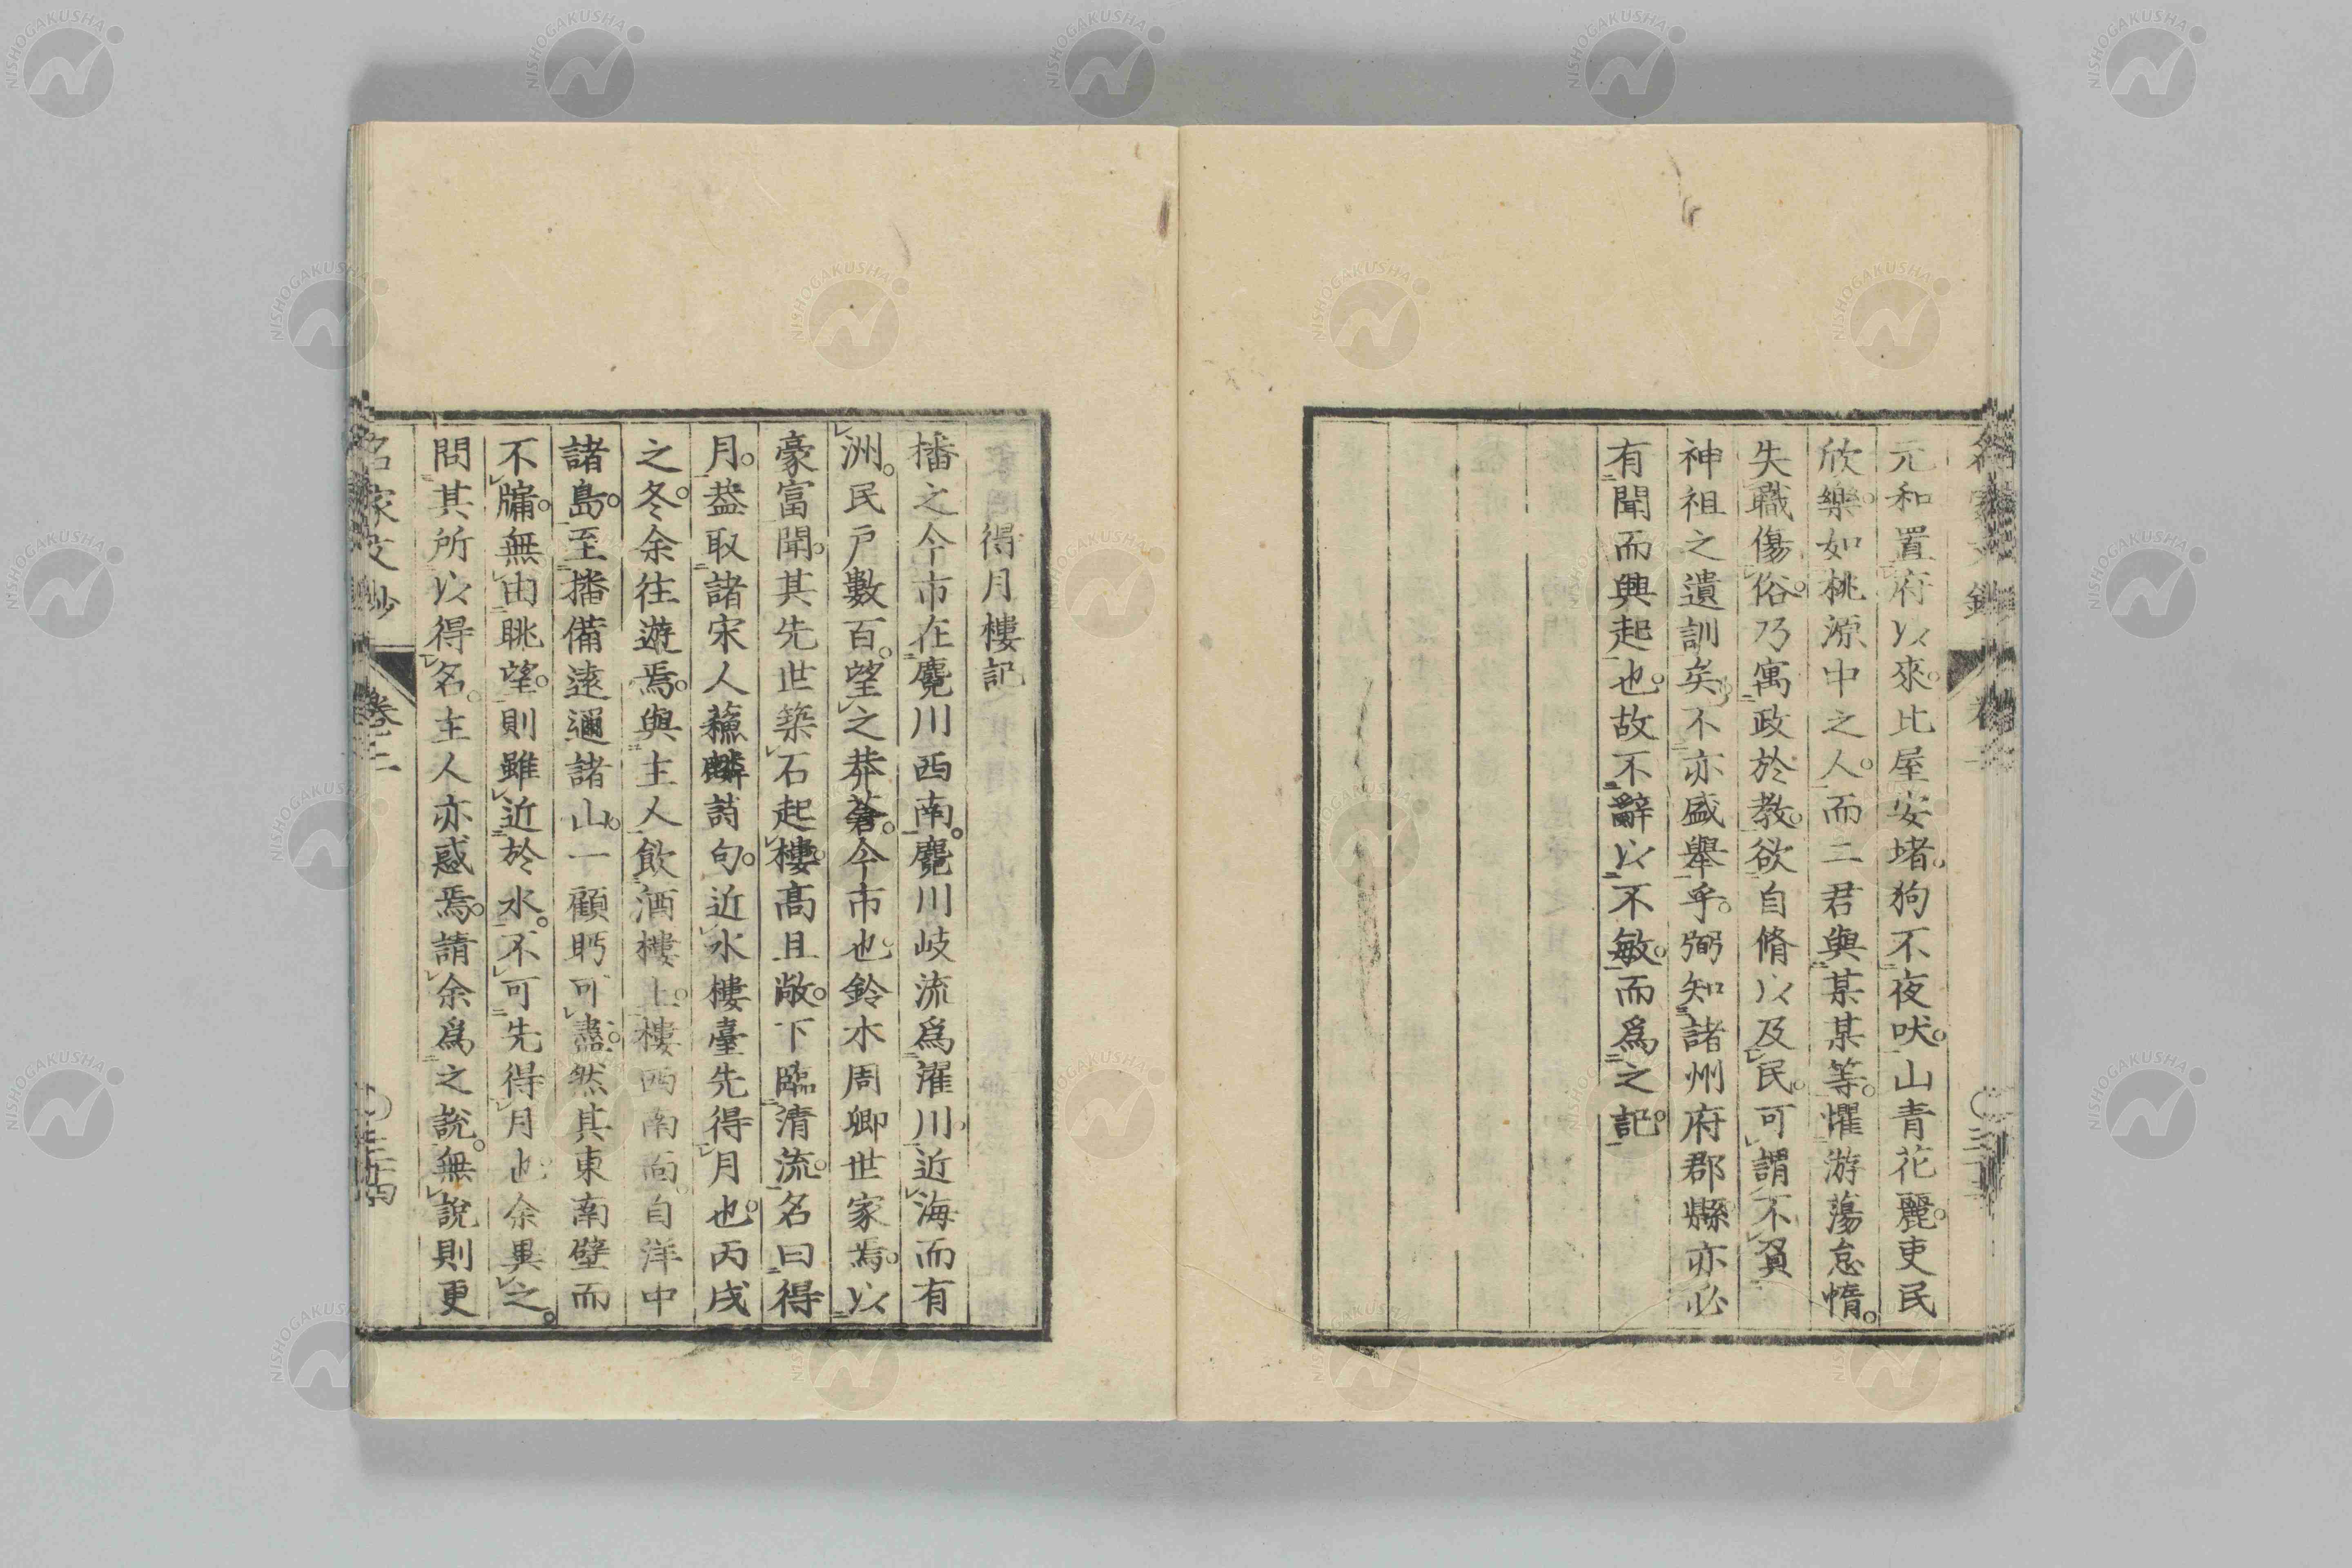 元和置府以來。比屋安堵。狗不夜吠。山青花麗。吏民
欣樂。如桃源中之人。而二君與某某等。懼游蕩怠惰。
失職傷俗。乃寓政於教。欲自脩以及民。可謂不負
神祖之遺訓矣。不亦盛舉乎。弼知諸州府郡縣亦必
有聞而興起也。故不辭以不敏。而爲之記。
得月樓記
播之今市在麑川西南。麑川岐流爲濯川。近海而有
洲。民戶數百。望之莽蒼。今市也鈴木周卿世家焉。以
豪富聞。其先世築石起樓。高且敞。下臨清流。名曰得
月。葢取諸宋人蘓麟詩句。近水樓臺先得月也。丙戌
之冬。余往遊焉。與主人飮酒樓上。樓西南面。自洋中
諸島。至播備遠邇諸山。一顧眄可盡。然其東南壁而
不牖。無由眺望。則雖近於水。不可先得月也余異之。
問其所以得名。主人亦惑焉。請余爲之說。無說則更
名家文鈔
卷之二
NISHOGAKUSHA